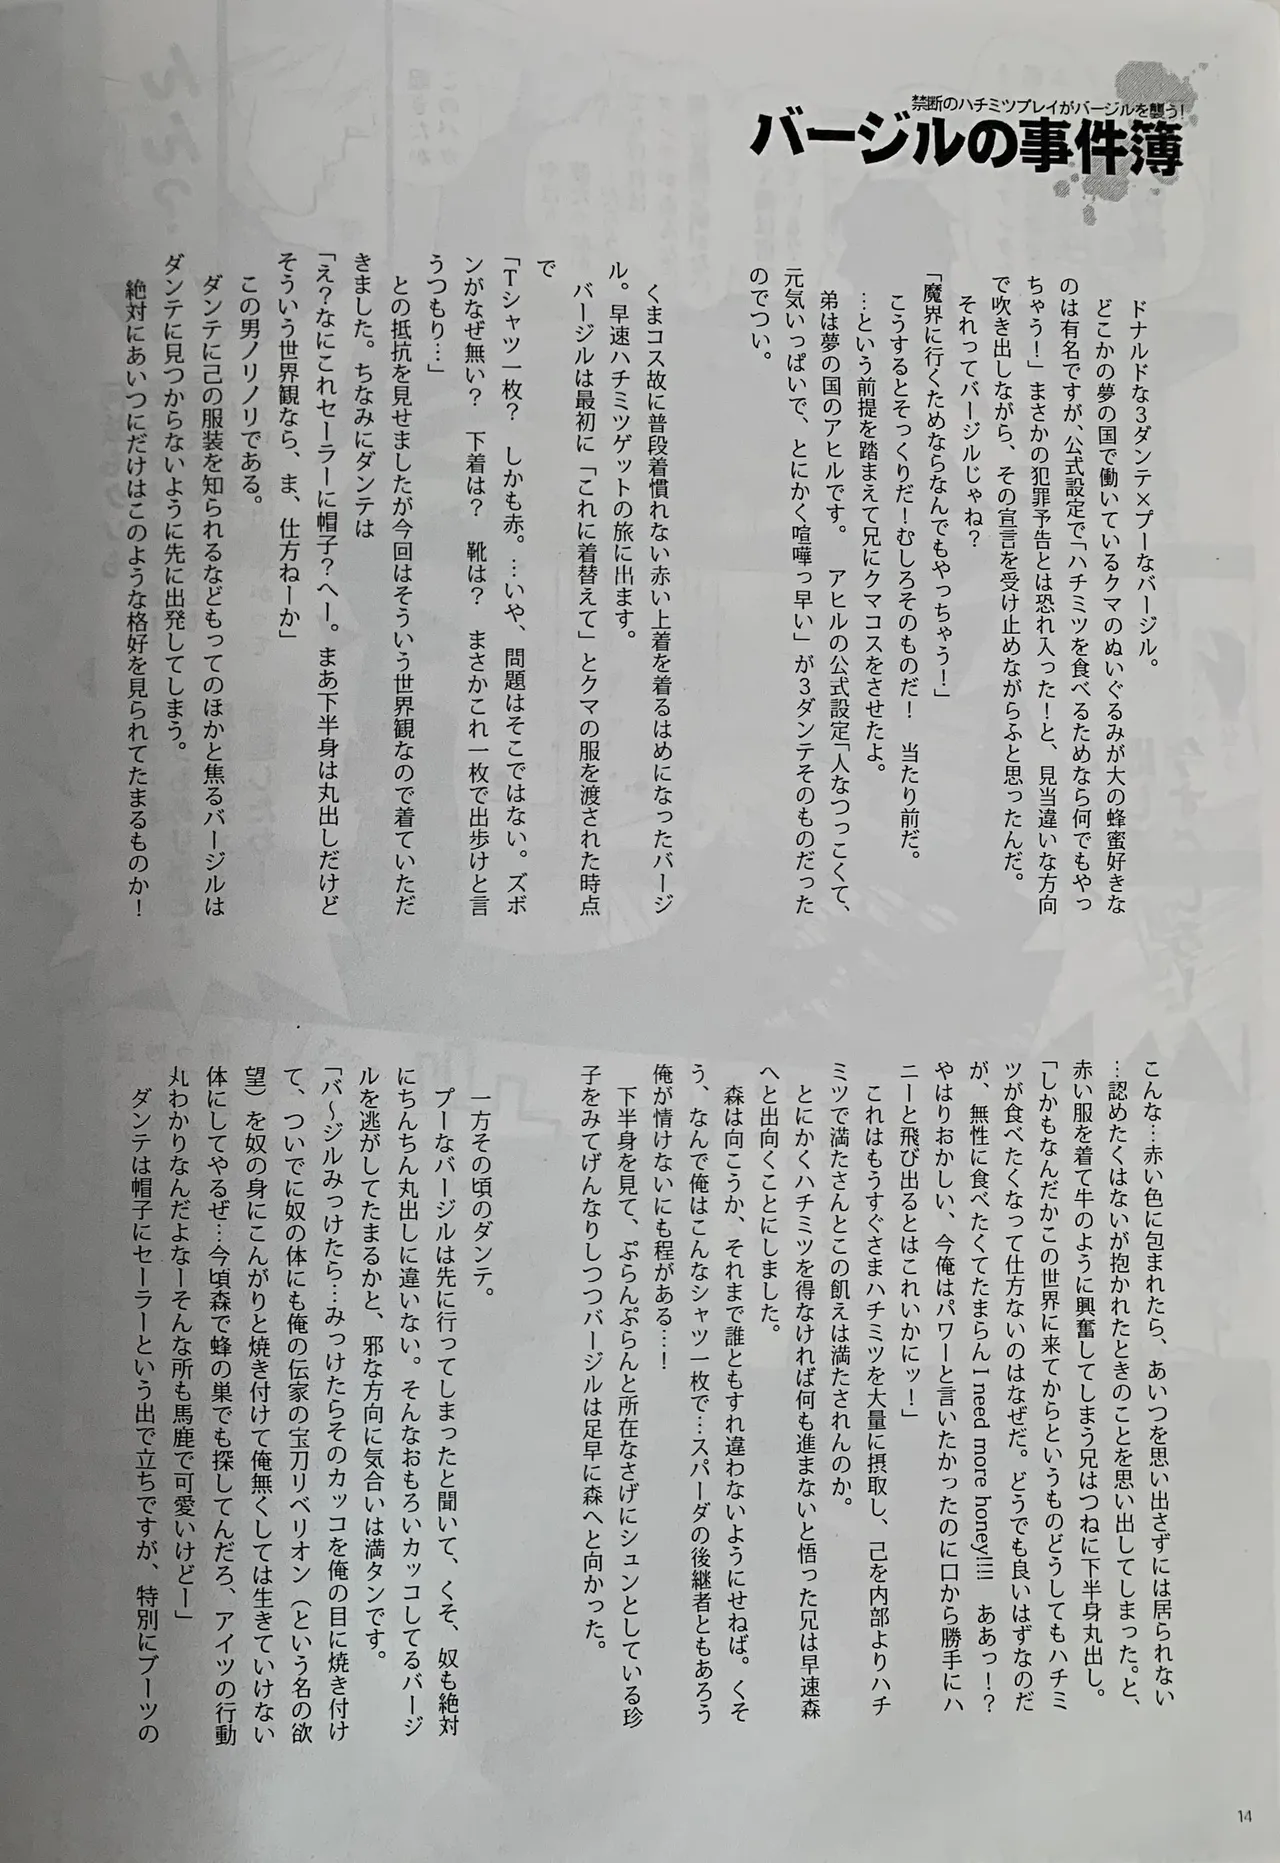 禁断のハチミツプレイがバージルを襲う！
バージルの事件簿
ドナルドな3ダンテ×プーなバージル。
どこかの夢の国で働いているクマのぬいぐるみが大の蜂蜜好きな
のは有名ですが、公式設定で「ハチミツを食べるためなら何でもやっ
ちゃう！」まさかの犯罪予告とは恐れ入った！と、見当違いな方向
で吹き出しながら、その宣言を受け止めながらふと思ったんだ。
それってバージルじゃね？
「魔界に行くためならなんでもやっちゃう！」
こうするとそっくりだ！むしろそのものだ！　当たり前だ。
…という前提を踏まえて兄にクマコスをさせたよ。
弟は夢の国のアヒルです。　アヒルの公式設定「人なつっこくて、
元気いっぱいで、とにかく喧嘩っ早い」が3ダンテそのものだった
のでつい。
くまコス故に普段着慣れない赤い上着を着るはめになったバージ
ル。早速ハチミツゲットの旅に出ます。
バージルは最初に「これに着替えて」とクマの服を渡された時点
で
「Tシャツ一枚？　しかも赤。…いや、問題はそこではない。ズボ
ンがなぜ無い？　下着は？　靴は？　まさかこれ一枚で出歩けと言
うつもり…」
との抵抗を見せましたが今回はそういう世界観なので着ていただ
きました。ちなみにダンテは
「え？なにこれセーラーに帽子？へー。まあ下半身は丸出しだけど
そういう世界観なら、ま、仕方ねーか」
この男ノリノリである。
ダンテに己の服装を知られるなどもってのほかと焦るバージルは
ダンテに見つからないように先に出発してしまう。
絶対にあいつにだけはこのような格好を見られてたまるものか！
こんな…赤い色に包まれたら、あいつを思い出さずには居られない
…認めたくはないが抱かれたときのことを思い出してしまった。と、
赤い服を着て牛のように興奮してしまう兄はつねに下半身丸出し。
「しかもなんだかこの世界に来てからというものどうしてもハチミ
ツが食べたくなって仕方ないのはなぜだ。どうでも良いはずなのだ
が、無性に食べたくてたまらん I need more honey!!!!　ああっ！？
やはりおかしい、今俺はパワーと言いたかったのに口から勝手にハ
ニーと飛び出るとはこれいかにッ！」
これはもうすぐさまハチミツを大量に摂取し、己を内部よりハチ
ミツで満たさんとこの飢えは満たされんのか。
とにかくハチミツを得なければ何も進まないと悟った兄は早速森
へと出向くことにしました。
森は向こうか、それまで誰ともすれ違わないようにせねば。くそ
う、なんで俺はこんなシャツ一枚で…スパーダの後継者ともあろう
俺が情けないにも程がある…！
下半身を見て、ぷらんぷらんと所在なさげにシュンとしている珍
子をみてげんなりしつつバージルは足早に森へと向かった。
一方その頃のダンテ。
プーなバージルは先に行ってしまったと聞いて、くそ、奴も絶対
にちんちん丸出しに違いない。そんなおもろいカッコしてるバージ
ルを逃がしてたまるかと、邪な方向に気合いは満タンです。
「バ～ジルみっけたら…みっけたらそのカッコを俺の目に焼き付け
て、ついでに奴の体にも俺の伝家の宝刀リベリオン（という名の欲
望）を奴の身にこんがりと焼き付けて俺無くしては生きていけない
体にしてやるぜ…今頃森で蜂の巣でも探してんだろ、アイツの行動
丸わかりなんだよなーそんな所も馬鹿で可愛いけどー」
ダンテは帽子にセーラーという出で立ちですが、特別にブーツの
14